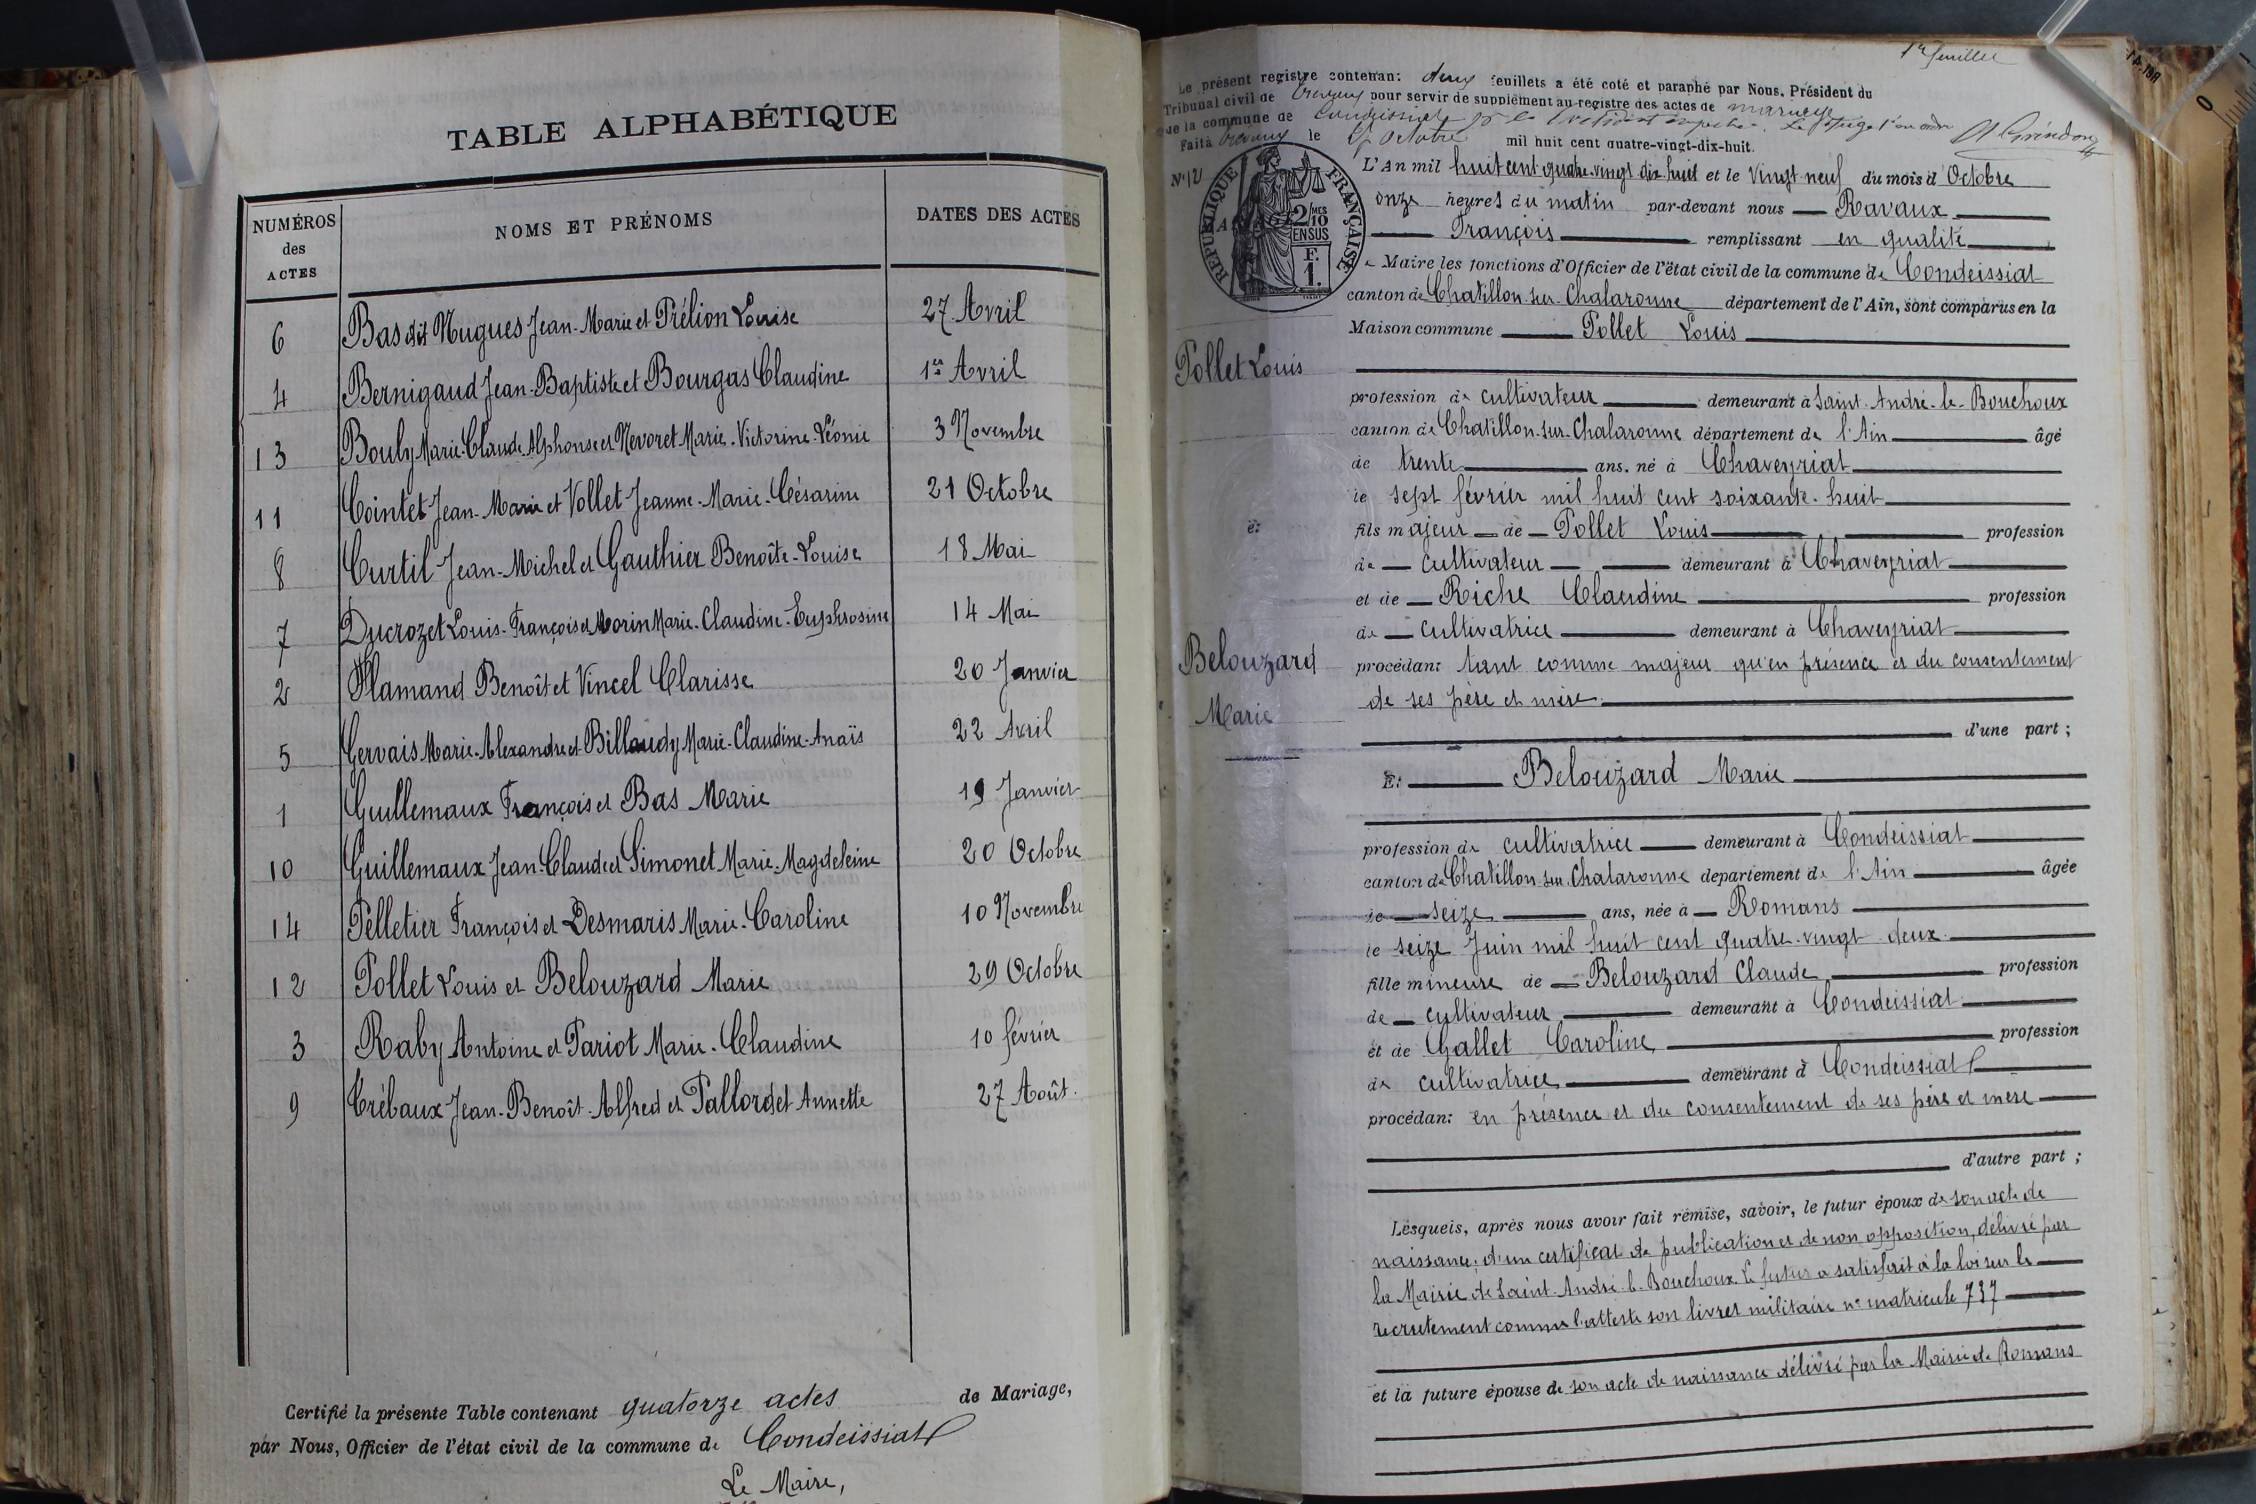 TABLE ALPHABÉTIQUE
NUMÉROS des ACTES
NOMS ET PRÉNOMS
DATES DES ACTES
6 Bas dit Nugues Jean-Marie et Prélion Louise 27 Avril
4 Bernigaud Jean-Baptiste et Bourgas Claudine 1er Avril
13 Bouly Marie-Claude-Alphonse et Nevoret Marie-Victorine-Léonie 3 Novembre
11 Cointet Jean-Marie et Vollet Jeanne-Marie-Césarine 21 Octobre
8 Curtil Jean-Michel et Gauthier Benoîte-Louise 18 Mai
7 Ducrozet Louis-François et Morin Marie-Claudine-Euphrosine 14 Mai
2 Flamand Benoît et Vincel Clarisse 20 Janvier
5 Gervais Marie-Alexandre et Billaudy Marie-Claudine-Anaïs 22 Avril
1 Guillemaux François et Bas Marie 19 Janvier
10 Guillemaux Jean-Claude et Simonet Marie-Magdeleine 20 Octobre
14 Pelletier François et Desmaris Marie-Caroline 10 Novembre
12 Pollet Louis et Belouzard Marie 29 Octobre
3 Raby Antoine et Pariot Marie-Claudine 10 février
9 Crébaux Jean-Benoît-Alfred et Pallordet Annette 27 Août.
Certifié la présente Table contenant quatorze actes de Mariage,
par Nous, Officier de l'état civil de la commune de Condeissiat
Le Maire,
1er feuillet
Le présent registre contenant deux feuillets a été coté et paraphé par Nous, Président du
Tribunal civil de Trévoux pour servir de supplément au registre des actes de mariage
de la commune de Condeissiat
Fait à Trévoux le Octobre mil huit cent quatre-vingt-dix-huit.
N° 12
RÉPUBLIQUE FRANÇAISE
2/10 MES
EN SUS
F. 1.
L'An mil huit cent quatre-vingt dix-huit et le Vingt-neuf du mois d'Octobre
onze heures du matin par-devant nous Ravaux
François remplissant en qualité
de Maire les fonctions d'Officier de l'état civil de la commune de Condeissiat
canton de Chatillon-sur-Chalaronne département de l'Ain, sont comparus en la
Maison commune Pollet Louis
Pollet Louis
profession de cultivateur demeurant à Saint-André-le-Bouchoux
canton de Chatillon-sur-Chalaronne département de l'Ain âgé
de trente ans, né à Chaveyriat
le sept février mil huit cent soixante-huit
et
fils majeur de Pollet Louis profession
de cultivateur demeurant à Chaveyriat
et de Riche Claudine profession
de cultivatrice demeurant à Chaveyriat
Belouzard
Marie
procédant tant comme majeur qu'en présence et du consentement
de ses père et mère
d'une part ;
Et Belouzard Marie
profession de cultivatrice demeurant à Condeissiat
canton de Chatillon-sur-Chalaronne département de l'Ain âgée
de seize ans, née à Romans
le seize Juin mil huit cent quatre-vingt deux
fille mineure de Belouzard Claude profession
de cultivateur demeurant à Condeissiat
et de Gallet Caroline profession
de cultivatrice demeurant à Condeissiat
procédant en présence et du consentement de ses père et mère
d'autre part ;
Lesquels, après nous avoir fait remise, savoir, le futur époux de son acte de
naissance, d'un certificat de publication et de non opposition, délivré par
la Mairie de Saint-André-le-Bouchoux. Le futur a satisfait à la loi sur le
recrutement comme l'atteste son livret militaire n° matricule 737
et la future épouse de son acte de naissance délivré par la Mairie de Romans